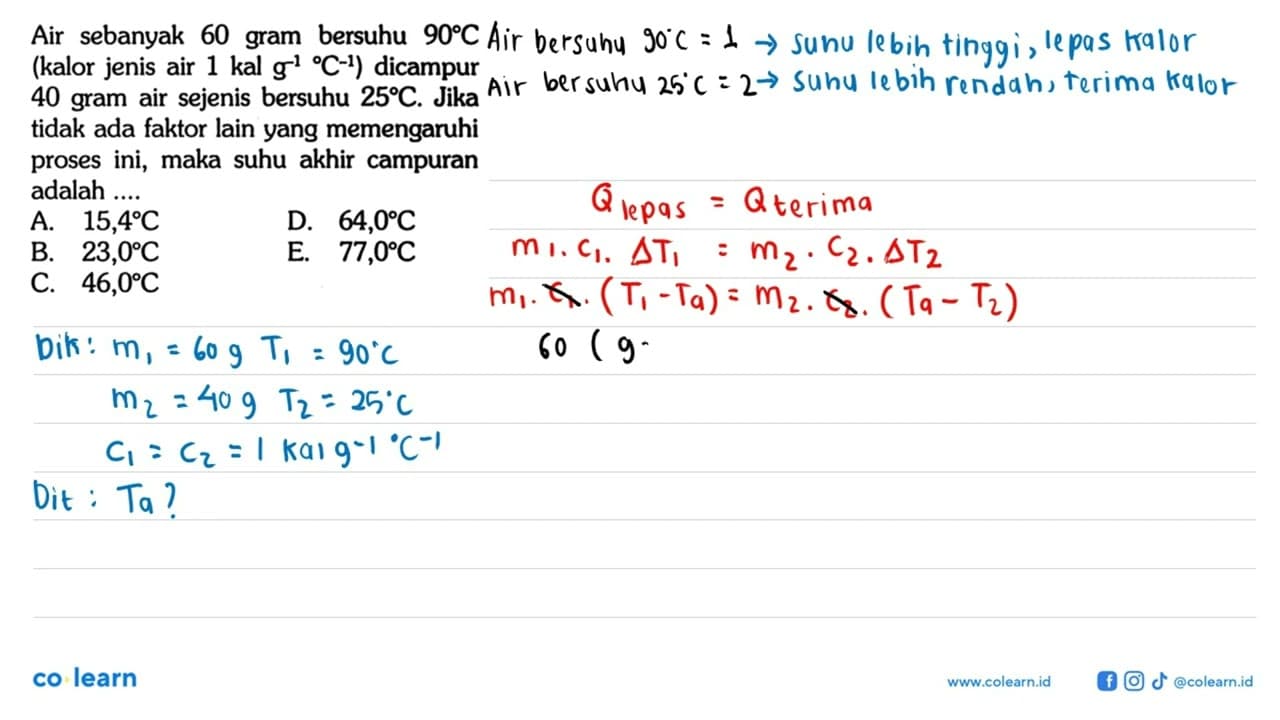 Air sebanyak 60 gram bersuhu 90°C
(kalor jenis air 1 kal g⁻¹ °C⁻¹) dicampur
40 gram air sejenis bersuhu 25°C. Jika
tidak ada faktor lain yang memengaruhi
proses ini, maka suhu akhir campuran
adalah ....
A. 15,4°C D. 64,0°C
B. 23,0°C E. 77,0°C
C. 46,0°C
Air bersuhu 90°C = 1 → suhu lebih tinggi, lepas kalor
Air bersuhu 25°C = 2 → suhu lebih rendah, terima kalor
Q lepas = Q terima
m₁. c₁. ΔT₁ = m₂. c₂. ΔT₂
m₁. c₁. (T₁ - Ta) = m₂. c₂. (Ta - T₂)
60 ( 9
Dik : m₁ = 60 g T₁ = 90°C
m₂ = 40 g T₂ = 25°C
c₁ = c₂ = 1 kal g-1 °C-1
Dit : Ta ?
co learn
www.colearn.id @colearn.id